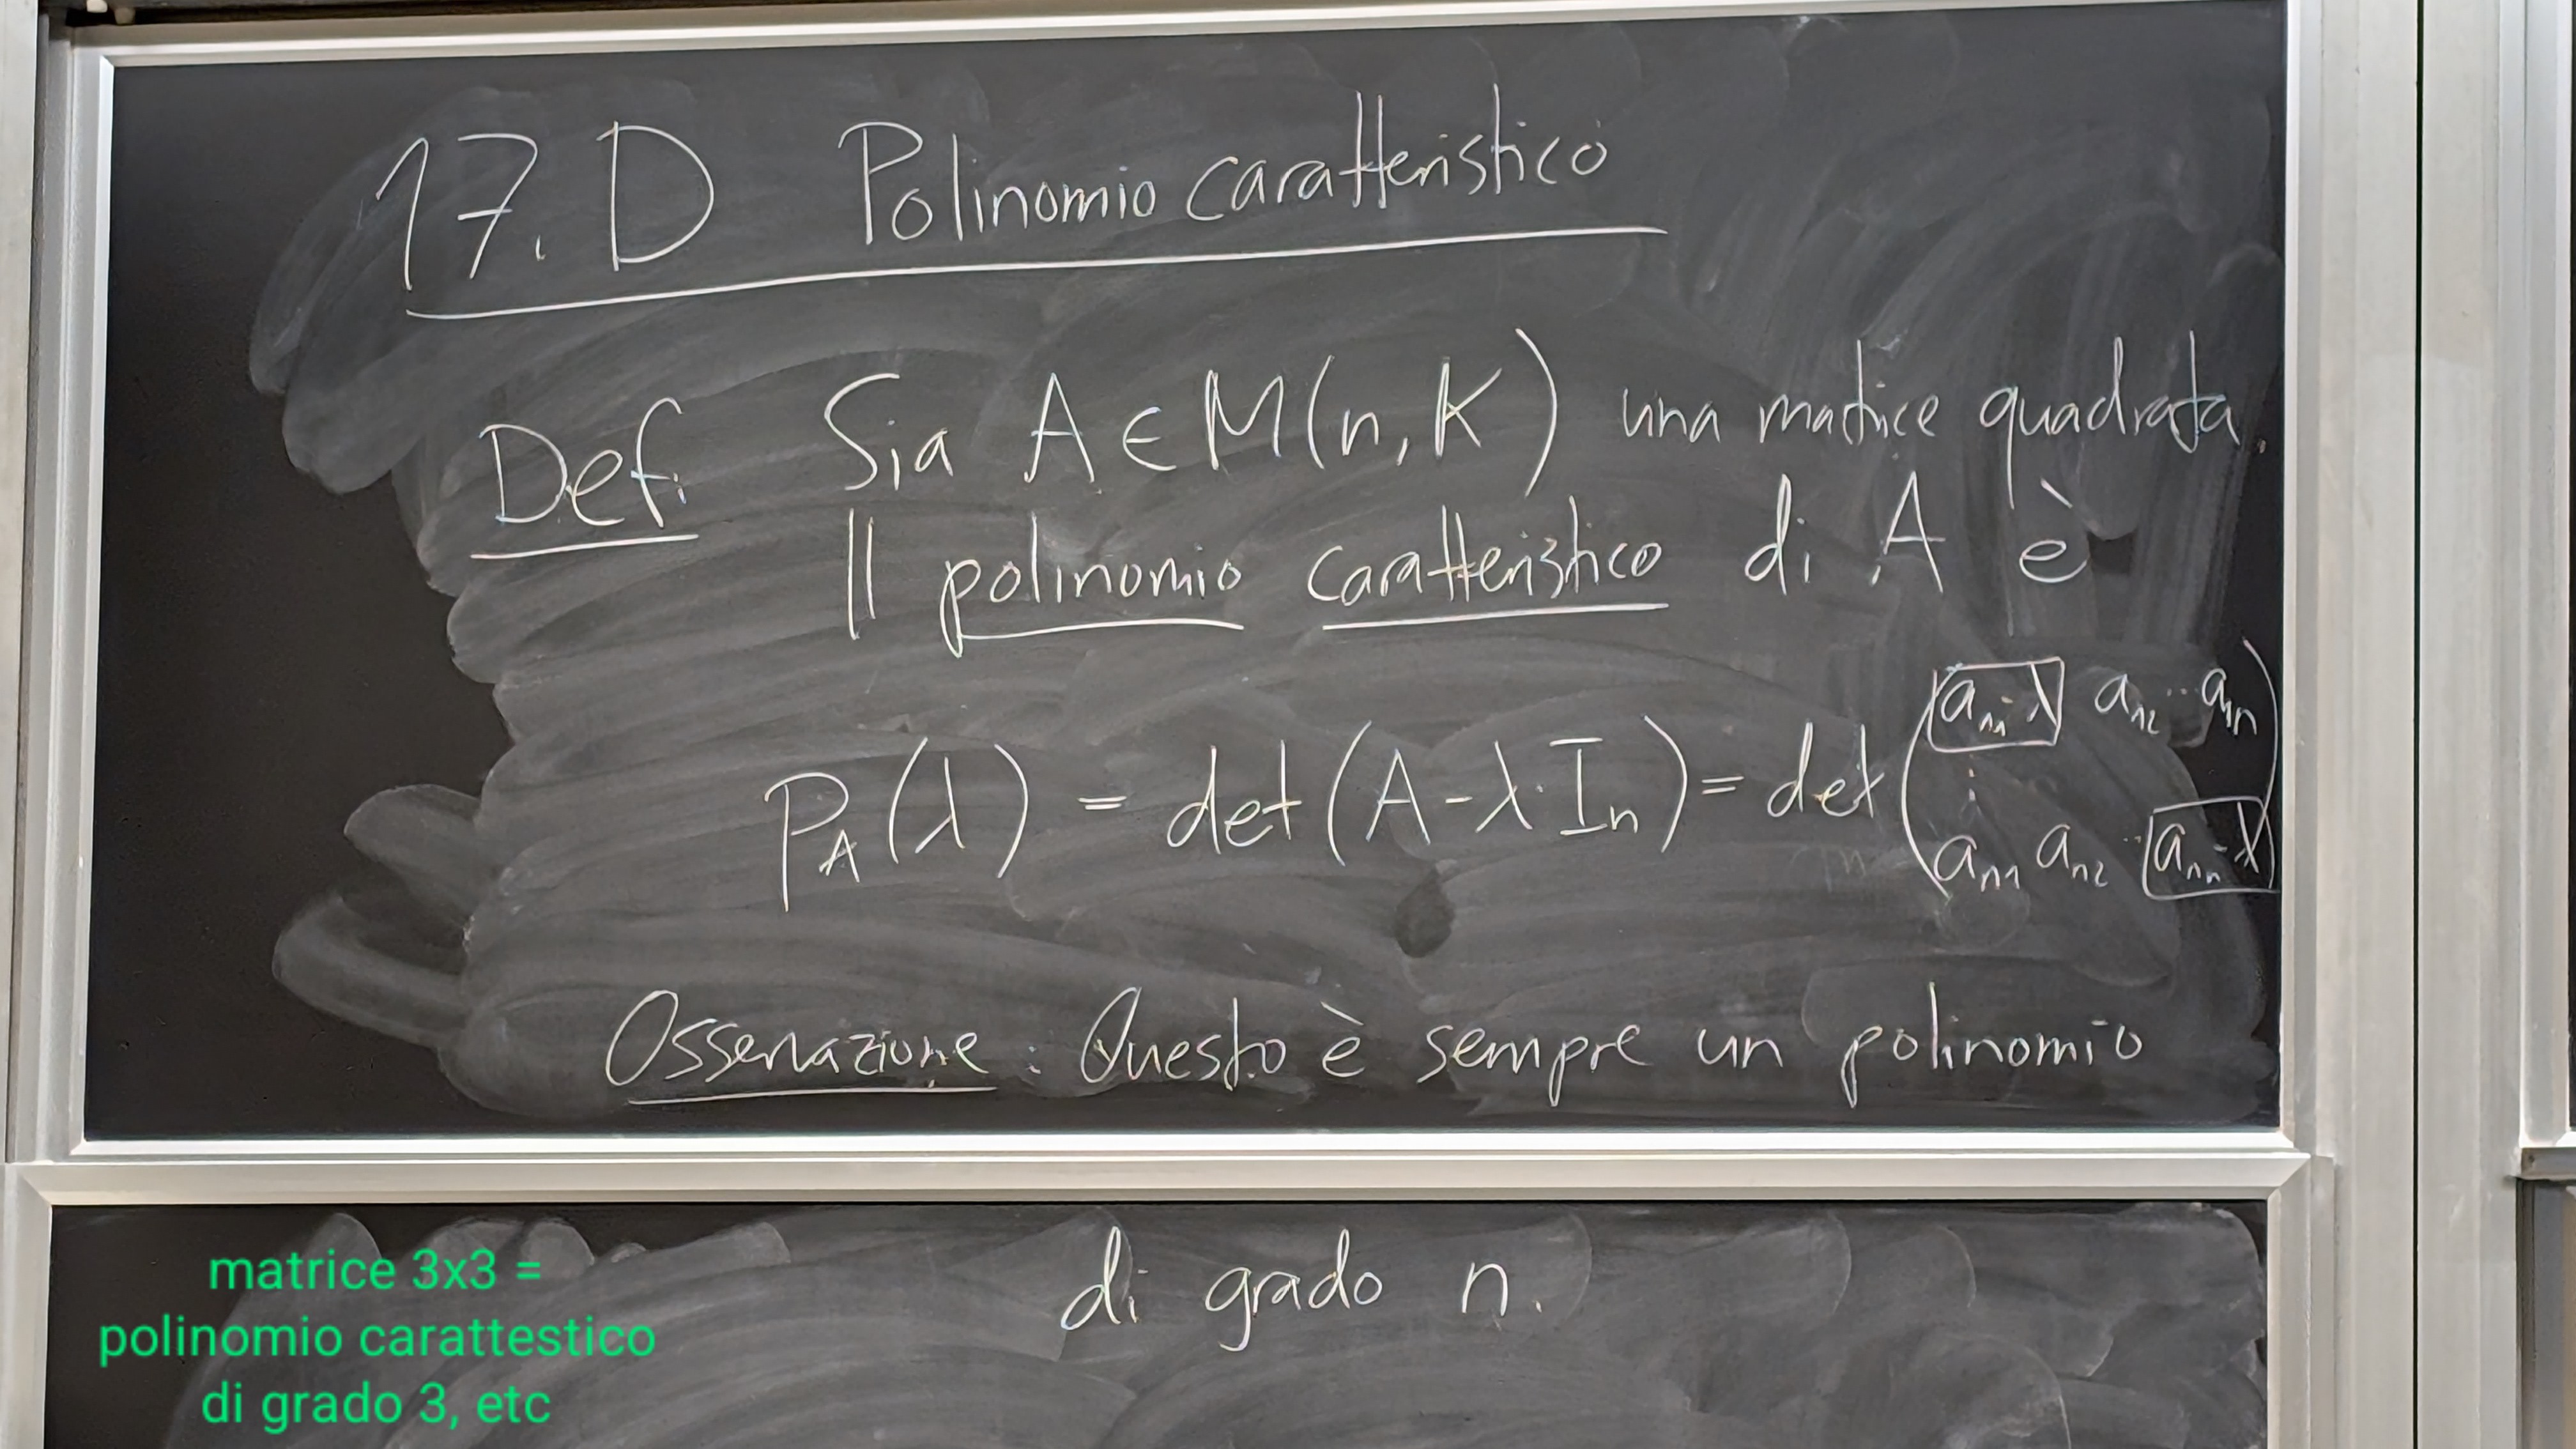 17.D Polinomio caratteristico
Def. Sia A ∈ M(n, K) una matrice quadrata.
Il polinomio caratteristico di A è
P_A(λ) = det(A - λ·I_n) = det(a_11-λ a_12 ... a_1n
⋮
a_n1 a_n2 ... a_nn-λ)
Osservazione: Questo è sempre un polinomio
di grado n.
matrice 3x3 =
polinomio carattestico
di grado 3, etc